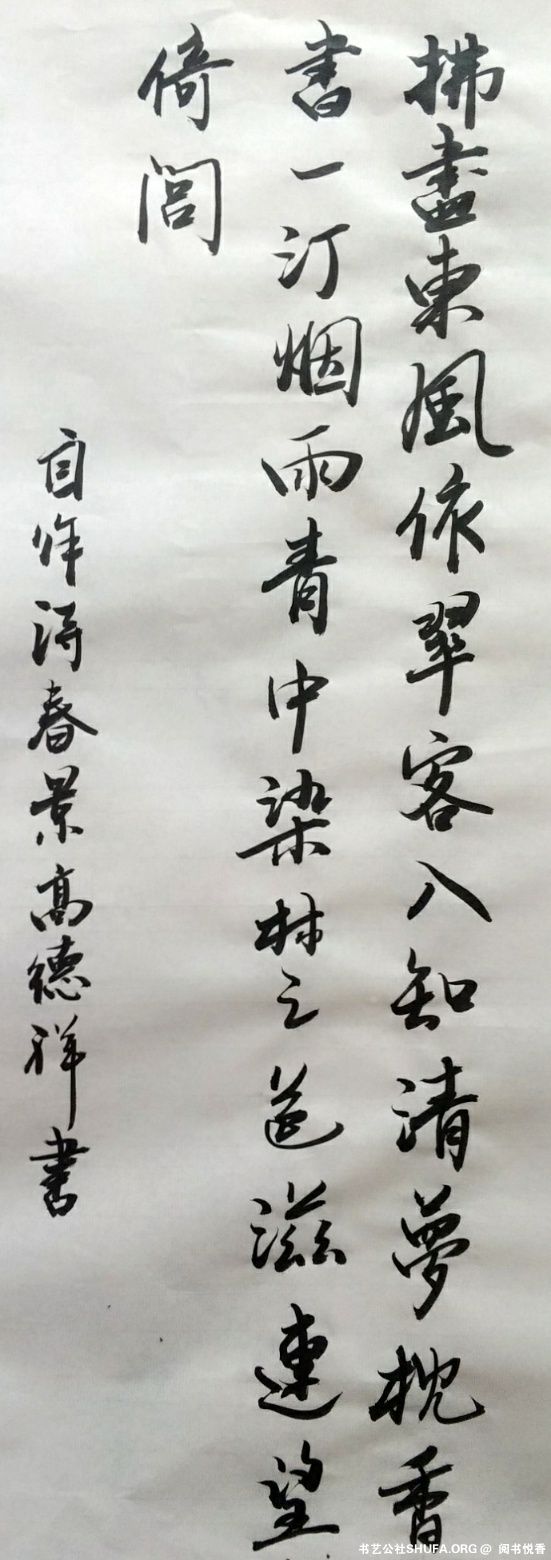 拂盡東風依翠客人知清夢枕香
書一汀烟雨青中染林之邑滋連望
倚閭
自咏得春景高德祥書
书艺公社SHUFA.ORG @ 阅书悦香